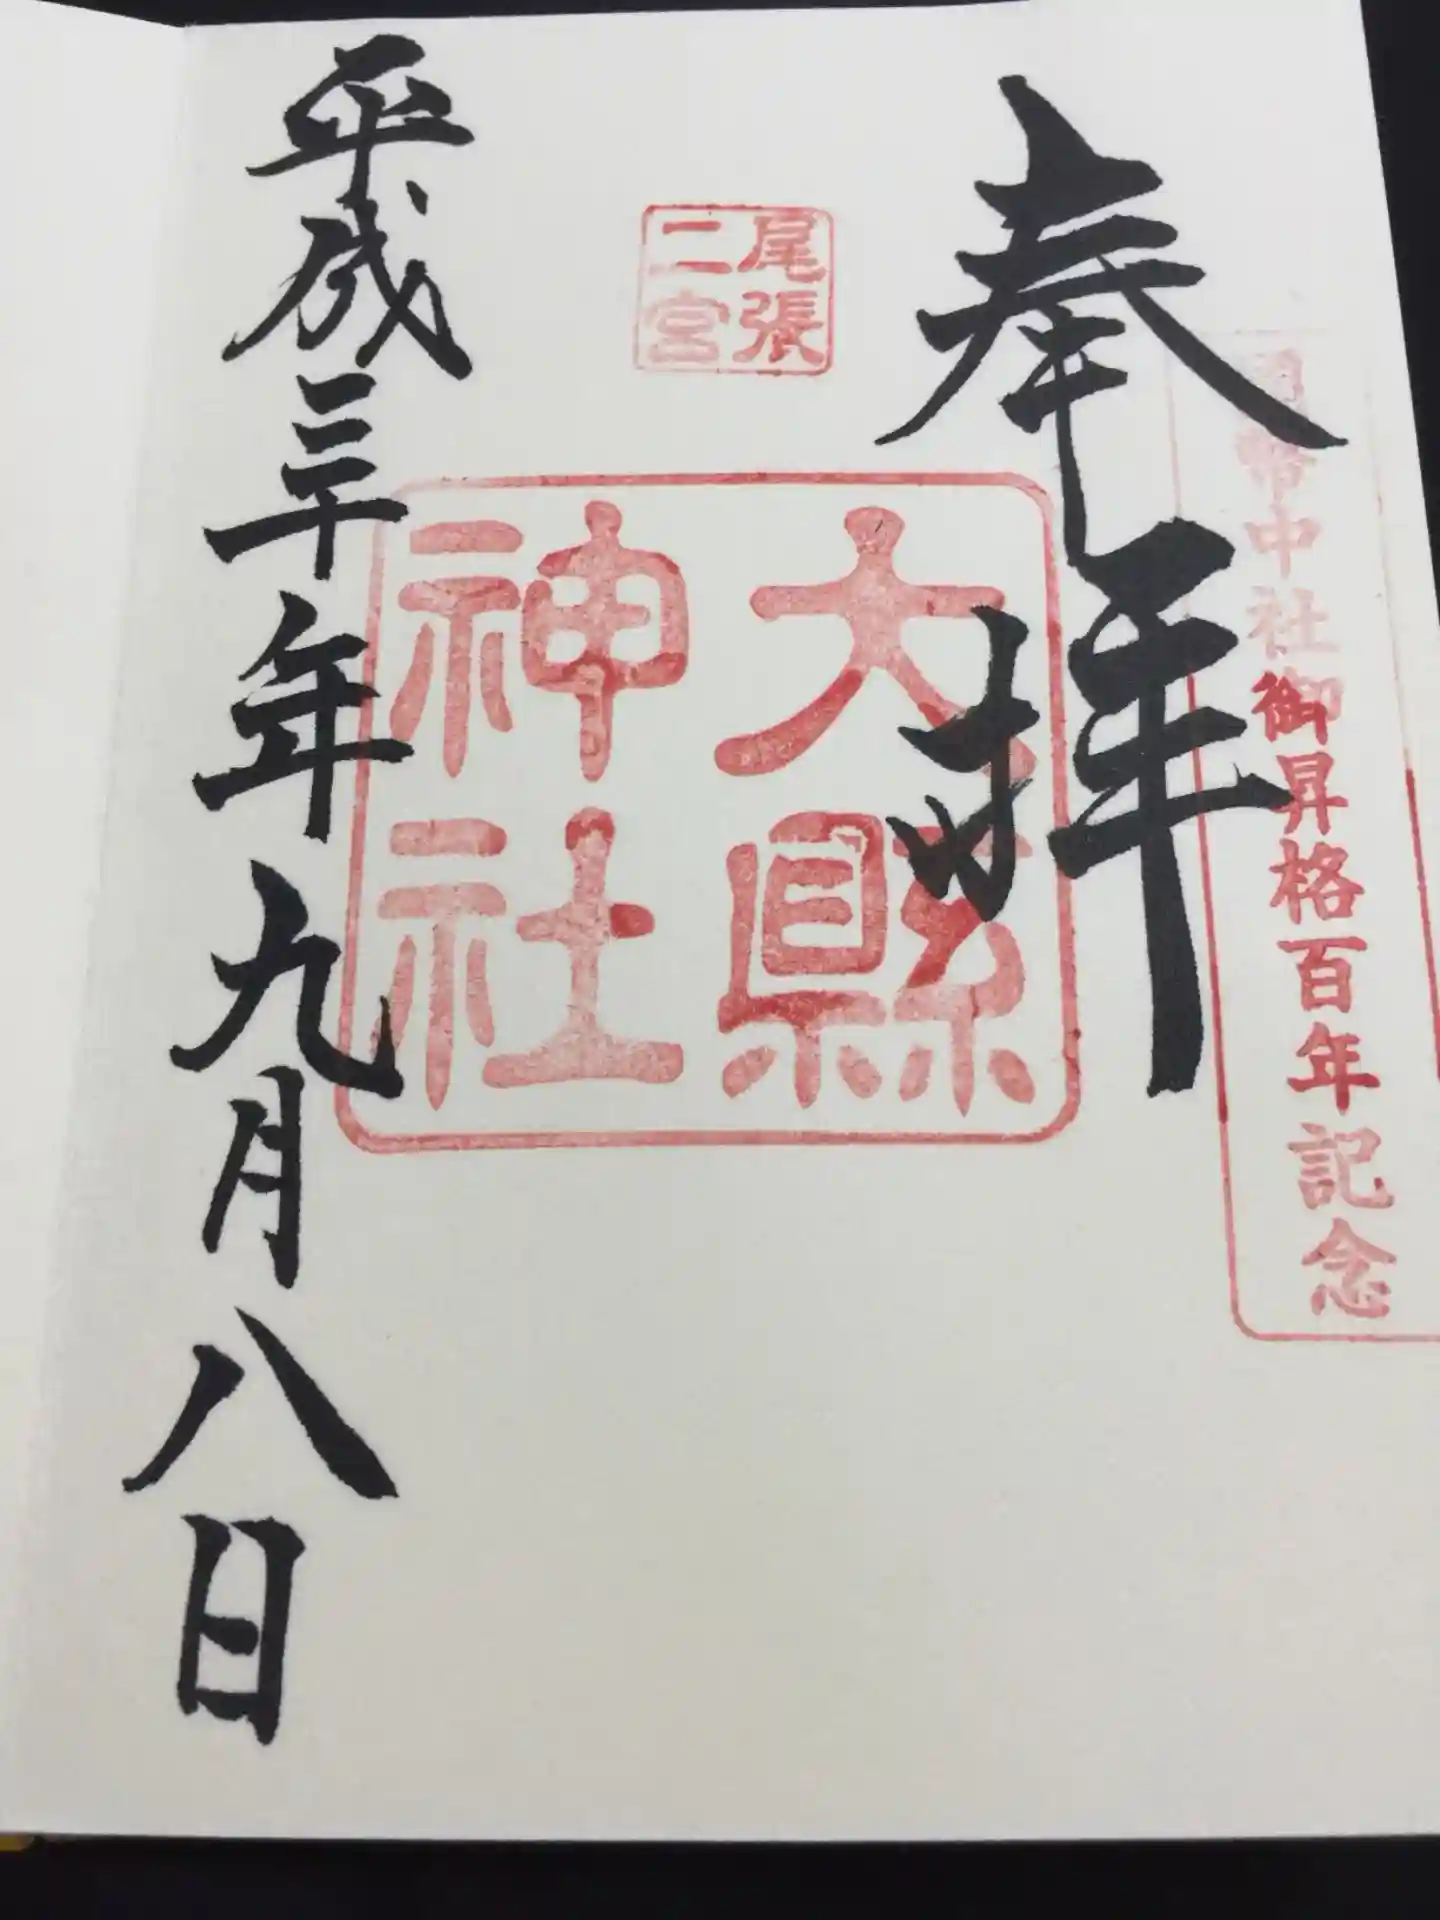 國幣中社御昇格百年記念
奉拝
尾張
二宮
大縣
神社
平成三十年九月八日